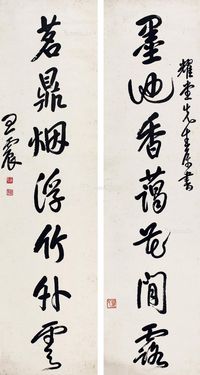 墨池香藹花間露
耀堂先生屬書
茗鼎烟浮竹外雲
王震